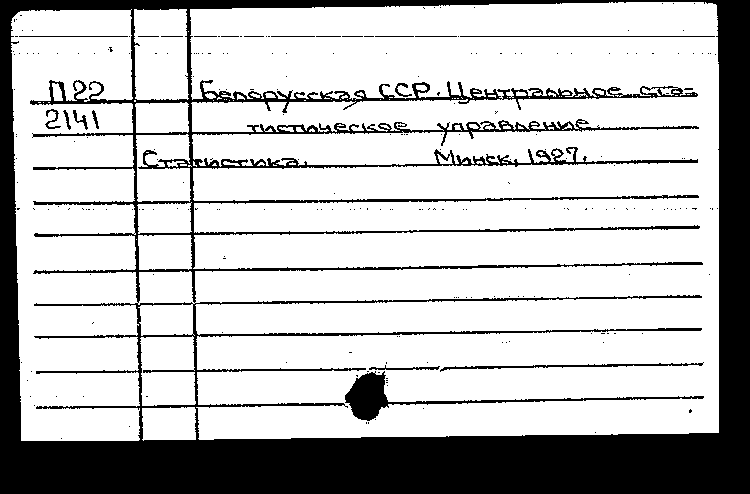 П22 Белорусская ССР. Центральное ста-
2141 тистическое управление.
Статистика. Минск, 1927.